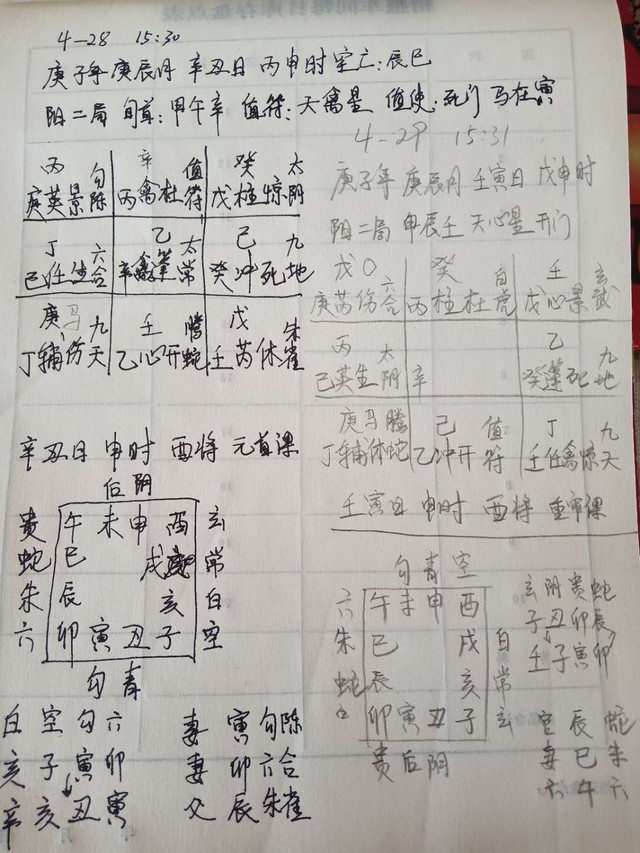 4-28 15:30
庚子年 庚辰月 辛丑日 丙申时 空亡:辰巳
阳二局 旬首:甲午辛 值符:天禽星 值使:死门 马在寅
丙 勾 辛 值 癸 太
庚英景陈 丙禽杜符 戊柱惊阴
丁 六 乙 太 己 九
己任生合 辛蓬常 癸冲死地
庚马 九 壬 腾 戊 朱
丁辅伤天 乙心开蛇 壬芮休雀
辛丑日 申时 酉将 元首课
后阴
贵 午未申酉 玄
蛇 巳 戌 常
朱 辰 亥 白
六 卯寅丑子 空
勾青
白空勾六 妻 寅 勾陈
亥子寅卯 妻 卯 六合
辛亥丑寅 父 辰 朱雀
4-29 15:31
庚子年 庚辰月 壬寅日 戊申时
阳二局 甲辰壬 天心星 开门
戊〇 六 癸 白 壬 玄
庚芮伤合 丙柱杜虎 戊心景武
丙 太 乙 九
己英生阴 辛 癸蓬死地
庚马腾 己 值 丁 九
丁辅休蛇 乙冲开符 壬任禽惊天
壬寅日 申时 酉将 重审课
勾青空
六 午未申酉
朱 巳 戌 白
蛇 辰 亥 常
卯寅丑子 玄
贵后阴
玄阴贵蛇
子丑卯辰
壬子寅卯
辰 蛇
妻 巳 朱
午 六